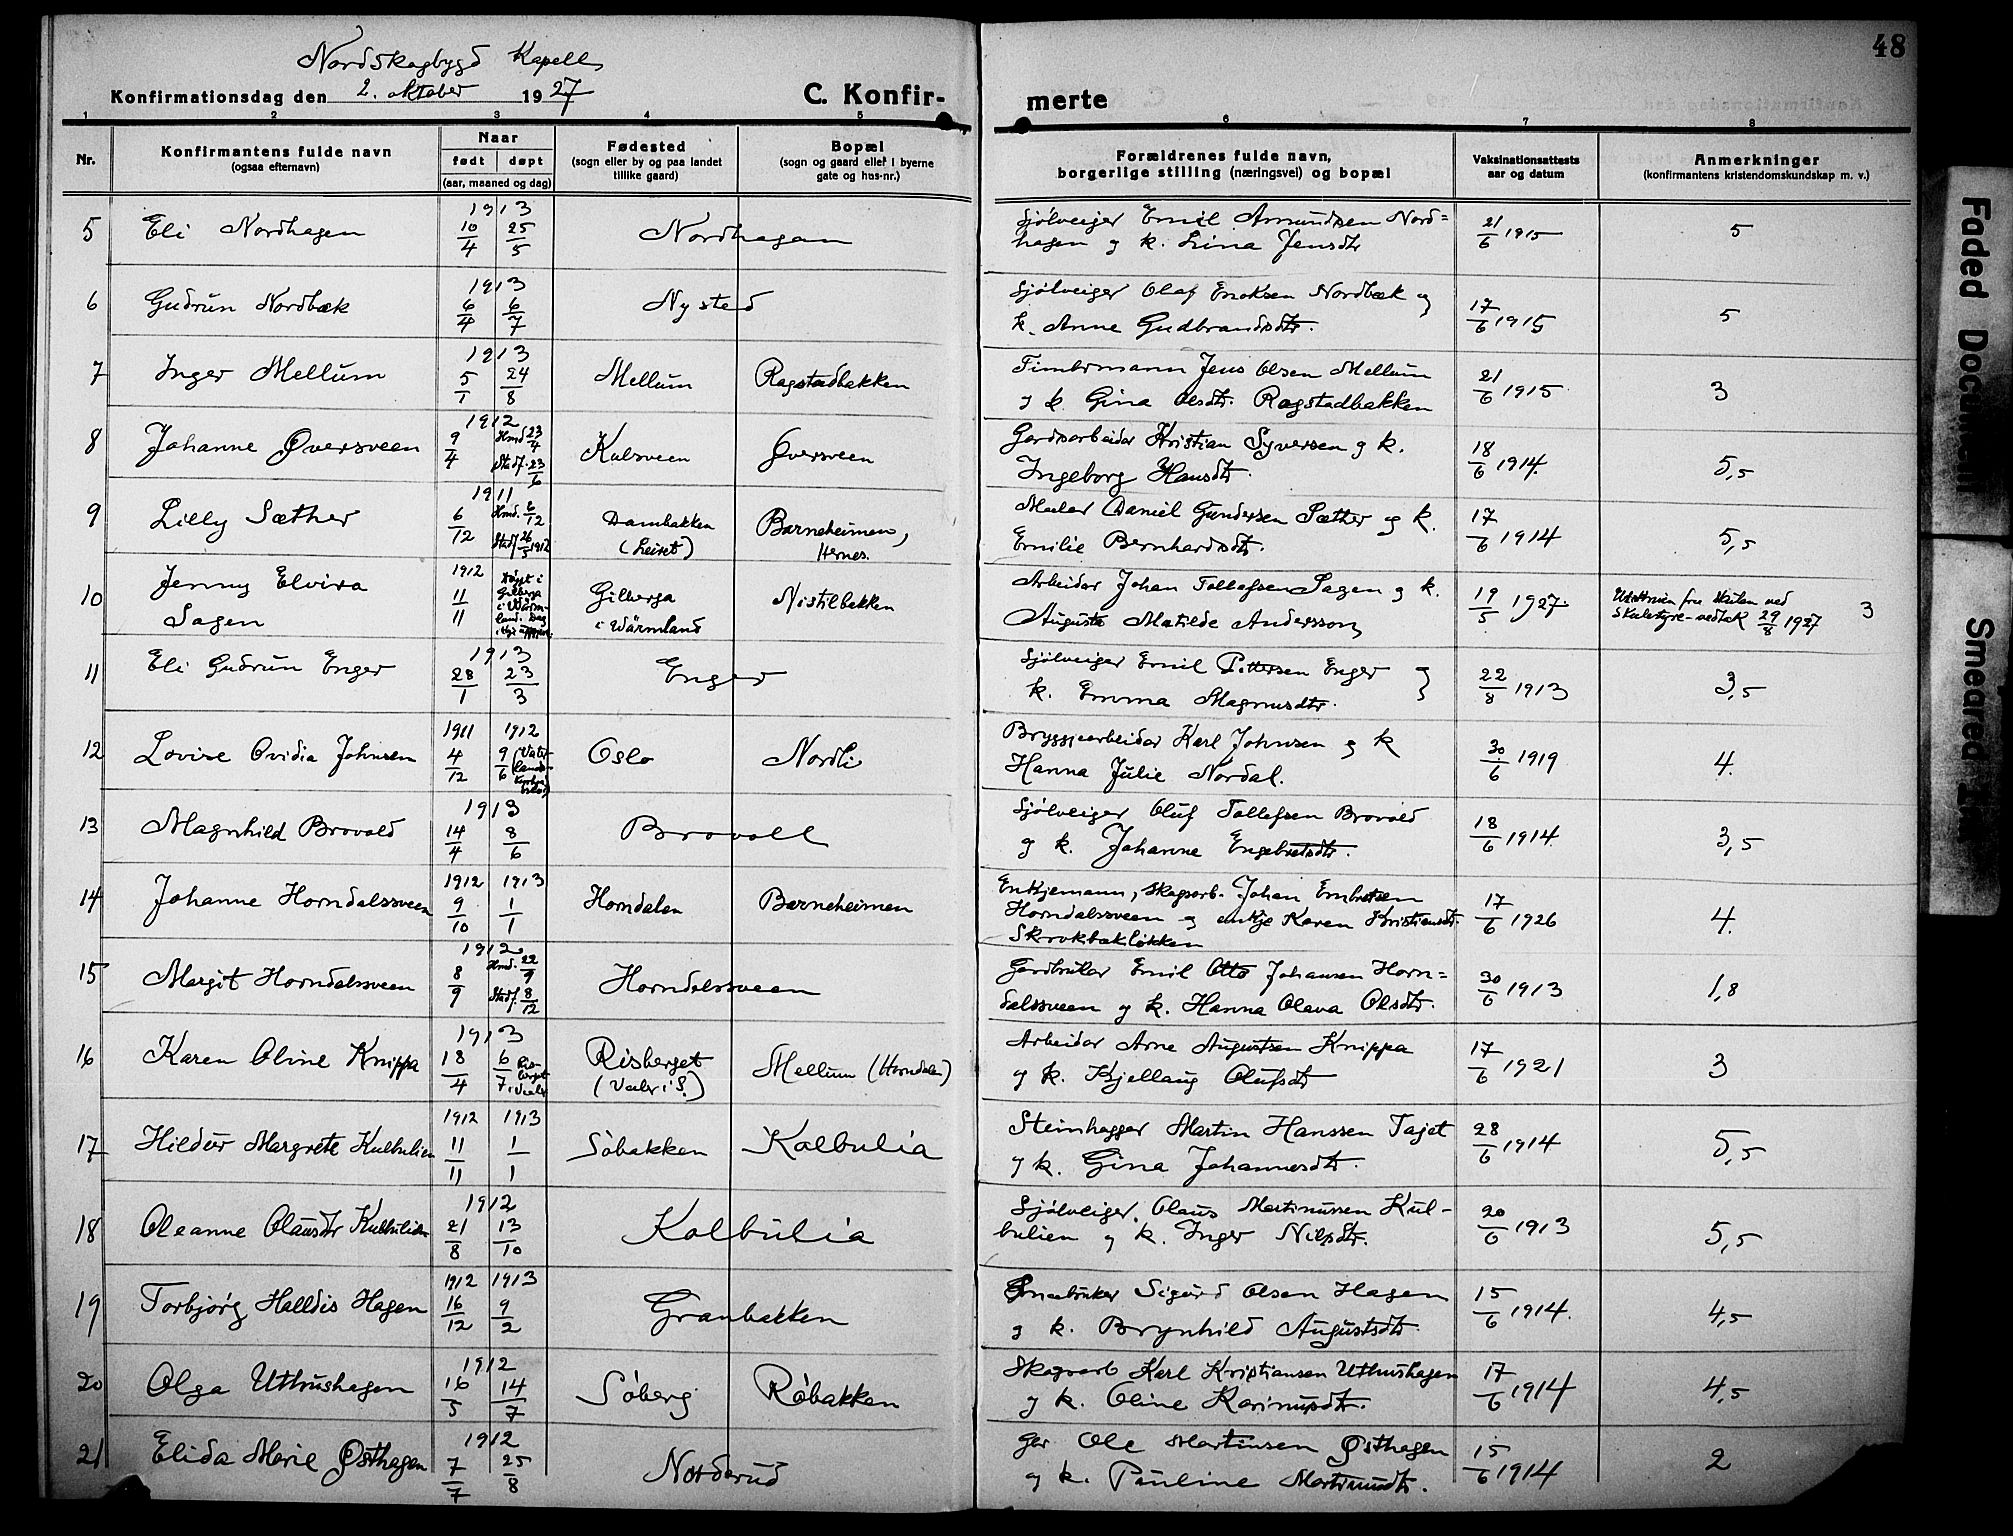 48
Nordskogbygd Kapell
Konfirmationsdag den 2. oktober 1927
C. Konfir-
merte
1 2 3 4 5 6 7 8
Nr.
Konfirmantens fulde navn
(ogsaa efternavn)
Naar
født døpt
(aar, maaned og dag)
Fødested
(sogn eller by og paa landet
tillike gaard)
Bopæl
(sogn og gaard eller i byerne
gate og hus-nr.)
Forældrenes fulde navn,
borgerlige stilling (næringsvei) og bopæl
Vaksinationsattests
aar og datum
Anmerkninger
(konfirmantens kristendomskundskap m. v.)
5 Eli Nordhagen 1913 10/4 25/5 Nordhagen Sjølveiger Emil Amundsen Nord=
hagen og k. Lina Jensdtr 21/6 1915 5
6 Gudrun Nordbæk 1913 6/4 6/7 Nysted Sjølveiger Olaf Enoksen Nordbæk og
k. Anne Gudbrandsdtr. 17/6 1915 5
7 Inger Mellum 1913 5/1 24/8 Mellum Ragstadbakken Timbrmann Jens Olsen Mellum
og k. Gina Olsdtr. Ragstadbakken 21/6 1915 3
8 Johanne Øversveen 1912 9/4 Hmd 23/4 Stadf. 23/6 Kulsveen Øversveen Gardsarbeidar Kristian Syversen og k.
Ingeborg Hansdtr. 18/6 1914. 5,5
9 Lilly Sæther 1911 6/12 Hmd. 6/12 Stadf. 26/5 1912 Dambakken
(Leiret) Barneheimen,
Hernes. Maler Daniel Gundersen Sæther og k.
Emilie Bernhardsdtr. 17/6 1914 5,5
10 Jenny Elvira
Sagen 1912 11/11 Døypt i
Gilberga
i Wärm-
land. Gilberga
i Wärmland Nistilbakken Arbeidar Johan Tollefsen Sagen og k.
Augusta Matilde Andersson, 19/5 1927 Utskriven fra skulen ved
Skulestyre-vedtak 29/8 1927 3
11 Eli Gudrun Enger 1913 28/1 23/3 Enger Sjølveiger Emil Pettersen Enger og
k. Emma Magnusdtr. 22/8 1913 3,5
12 Lovise Ovidia Johnsen 1911 4/12 1912 9/6 Oslo Nordli Bryggjearbeidar Karl Johnsen og k
Hanna Julie Nordal. 30/6 1919 4.
13 Magnhild Brovold 1913 14/4 8/6 Brovoll Sjølveiger Oluf Tollefsen Brovold
og k. Johanne Engebretsdtr. 18/6 1914. 3,5
14 Johanne Horndalssveen 1912 9/10 1913 1/1 Horndalen Barneheimen Enkjemann, skogsarb. Johan Embretsen
Horndalssveen og enkje Karen Kristiansdtr.
Skrokbækløkken 17/6 1926 4.
15 Margit Horndalssveen 1912 8/9 Hmd. 22/9 Stadf. 8/12 Horndalssveen Gardbrukar Emil Otto Johansen Horn=
dalssveen og k. Hanna Olava Olsdtr. 30/6 1913 1,8
16 Karen Oline Knippa 1913 18/4 6/7 Ris-
berget
i Vaaler Risberget
(Vaaler i S.) Mellum (Horndalen) Arbeidar Arne Augustsen Knippa
og k. Kjellaug Olufsdtr 17/6 1921 3
17 Hildur Margrete Kulbulien 1912 11/11 1913 1/1 Søbakken Kolbulia Steinhogger Martin Hanssen Tajet
og k. Gina Johannesdtr. 28/6 1914 5,5
18 Oleanne Olausdtr Kulbulien 1912 21/8 13/10 Kolbulia Sjølveiger Olaus Martinussen Kul-
bulien og k. Inger Nilsdtr. 20/6 1913 5,5
19 Torbjørg Halldis Hagen 1912 16/12 1913 9/2 Granbakken Smaabruker Sigurd Olsen Hagen
og k. Brynhild Augustsdtr. 15/6 1914. 4,5
20 Olga Uthushagen 1912 16/5 14/7 Søberg Røbakken Skogsarb Karl Kristiansen Uthushagen
og k. Oline Karinusdtr. 17/6 1914 4,5
21 Elida Marie Østhagen 1912 7/7 25/8 Norderud Ole Martinsen Østhagen
og k. Pauline Martinusdtr. 15/6 1914 2
Faded Document
Smeared Ink